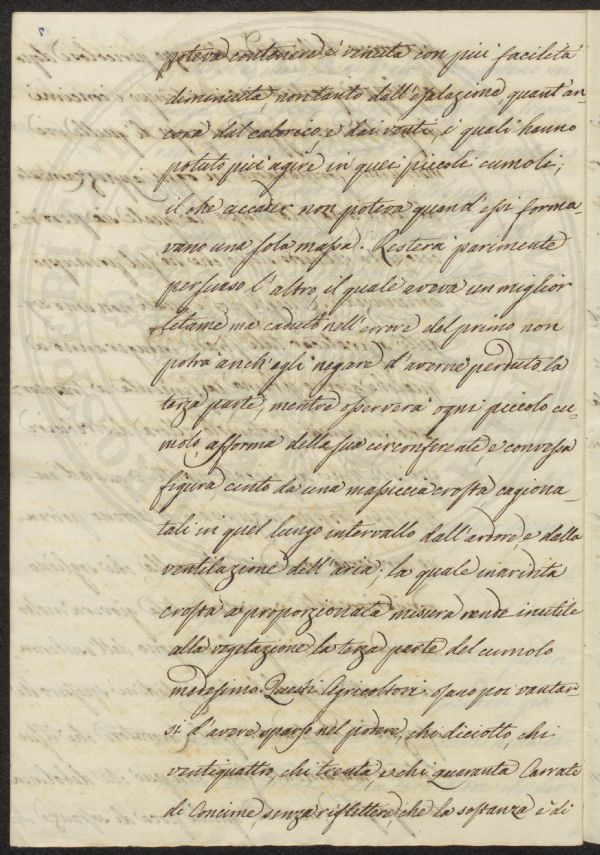 poteva contenere è venuta con più facilità
diminuita non tanto dall'esalazione, quant'an-
cora dal calorico, e dai venti, i quali hanno
potuto più agire in quei piccoli cumoli;
il che accader non poteva quand'essi forma-
vano una sola massa. Resterà parimente
persuaso l'altro, il quale aveva un miglior
letame, ma caduto nell'errore del primo non
potrà anch'egli negare d'averne perduto la
terza parte, mentre osserverà ogni piccolo cu-
molo, a forma della sua circonferente, e convessa
figura, cinto da una massiccia crosta cagiona-
tali in quel lungo intervallo dall'ardore, e dalla
ventilazione dell'aria; la quale inaridita
crosta a proporzionata misura rende inutile
alla vegetazione la terza parte del cumolo
medesimo. Questi Agricoltori osano poi vantar-
si d'avere sparso nel podere, chi diciotto, chi
ventiquattro, chi trenta, e chi quaranta Carrate
di Concime, senza riflettere, che la sostanza è di